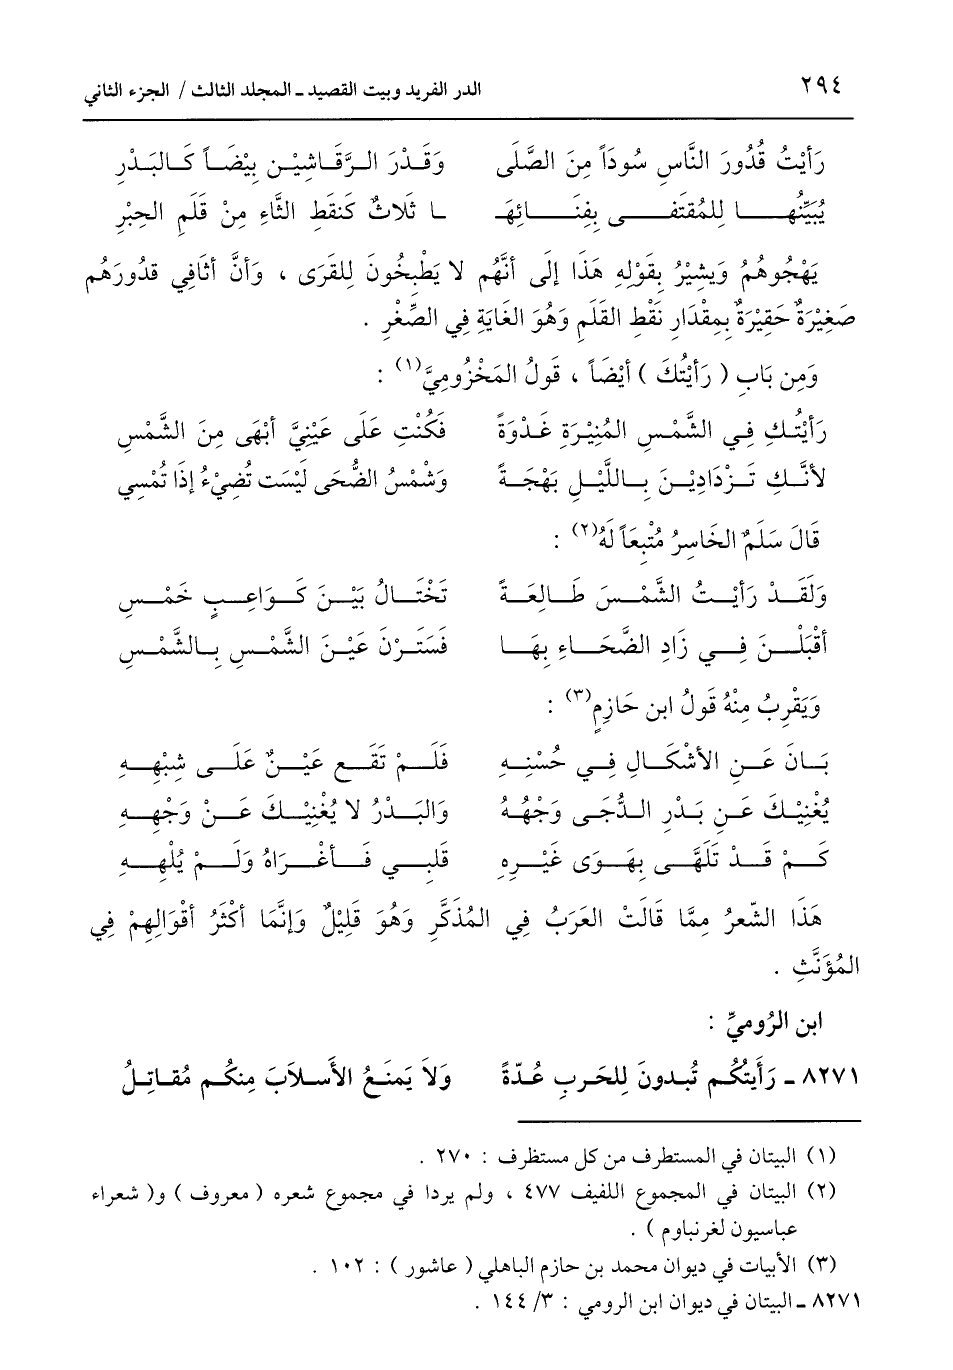 ٢٩٤ الدر الفريد وبيت القصيد ـ المجلد الثالث / الجزء الثاني
رَأَيْتُ قُدُورَ النَّاسِ سُودَاً مِنَ الصَّلَى وَقَـدْرَ الـرَّقَـاشِيْـنِ بِيْضَـاً كَـالبَـدْرِ
يُبَيِّنُهـــــا لِلمُقتَفـــــى بِفِنَـــــائِهَـ ـا ثَلَاثٌ كَنَقطِ الثَّاءِ مِنْ قَلَمِ الحِبْرِ
يَهْجُوهُمُ وَيشِيْرُ بِقَوْلِهِ هَذَا إلَى أنَّهُم لا يَطْبِخُونَ لِلقَرَى ، وَأنَّ أثَافِي قدُورَهُم
صَغِيْرَةٌ حَقِيْرَةٌ بِمِقْدَارِ نَقْطِ القَلَمِ وَهُوَ الغَايَةِ فِي الصِّغْرِ .
وَمِن بَابِ ( رَأيْتُكَ ) أيْضَاً ، قَولُ المَخْزُومِيَّ(١) :
رَأيْتُـكِ فِـي الشَّمْـسِ المُنِيْـرَةِ غَـدْوَةً فَكُنْتِ عَلَى عَيْنِيَّ أبْهَى مِنَ الشَّمْسِ
لأنَّـكِ تَـزْدَادِيْـنَ بِـاللَّيْـلِ بَهْجَـةً وَشَمْسُ الضُّحَى لَيْسَت تُضِيْءُ إذَا تُمْسِي
قَالَ سَلَمٌ الخَاسِرُ مُتْبِعَاً لَهُ(٢) :
وَلَقَـدْ رَأيْـتُ الشَّمْـسَ طَـالِعَـةً تَخْتَـالُ بَيْـنَ كَـوَاعِـبٍ خَمْـسِ
أقْبَلْـنَ فِـي زَادِ الضَّحَـاءِ بِهَـا فَسَتَـرْنَ عَيْـنَ الشَّمْـسِ بِـالشَّمْـسِ
وَيَقْرِبُ مِنْهُ قَولُ ابن حَازِمٍ(٣) :
بَـانَ عَـنِ الأشْكَـالِ فِـي حُسْنِـهِ فَلَـمْ تَقَـعِ عَيْـنٌ عَلَـى شِبْهِـهِ
يُغْنِيْـكَ عَـنِ بَـدْرِ الـدُّجَـى وَجْهُـهُ وَالبَـدْرُ لا يُغْنِيْـكَ عَـنْ وَجْهِـهِ
كَـمْ قَـدْ تَلَهَّـى بِهَـوَى غَيْـرِهِ قَلبِـي فَـأغْـرَاهُ وَلَـمْ يُلْهِـهِ
هَذَا الشّعرُ مِمَّا قَالَتْ العَرَبُ فِي المُذَكَّرِ وَهُوَ قَلِيْلٌ وَإنَّمَا أكْثَرُ أقْوَالِهِمْ فِي
المُؤَنَّثِ .
ابن الرُوميِّ :
٨٢٧١ ـ رَأَيتُكُم تُبدونَ لِلحَربِ عُدّةً وَلاَ يَمنَـعُ الأَسـلاَبَ مِنكُـم مُقـاتِـلُ
(١) البيتان في المستطرف من كل مستظرف : ٢٧٠ .
(٢) البيتان في المجموع اللفيف ٤٧٧ ، ولم يردا في مجموع شعره ( معروف ) و( شعراء
عباسيون لغرنباوم ) .
(٣) الأبيات في ديوان محمد بن حازم الباهلي ( عاشور ) : ١٠٢ .
٨٢٧١ ـ البيتان في ديوان ابن الرومي : ٣/ ١٤٤ .